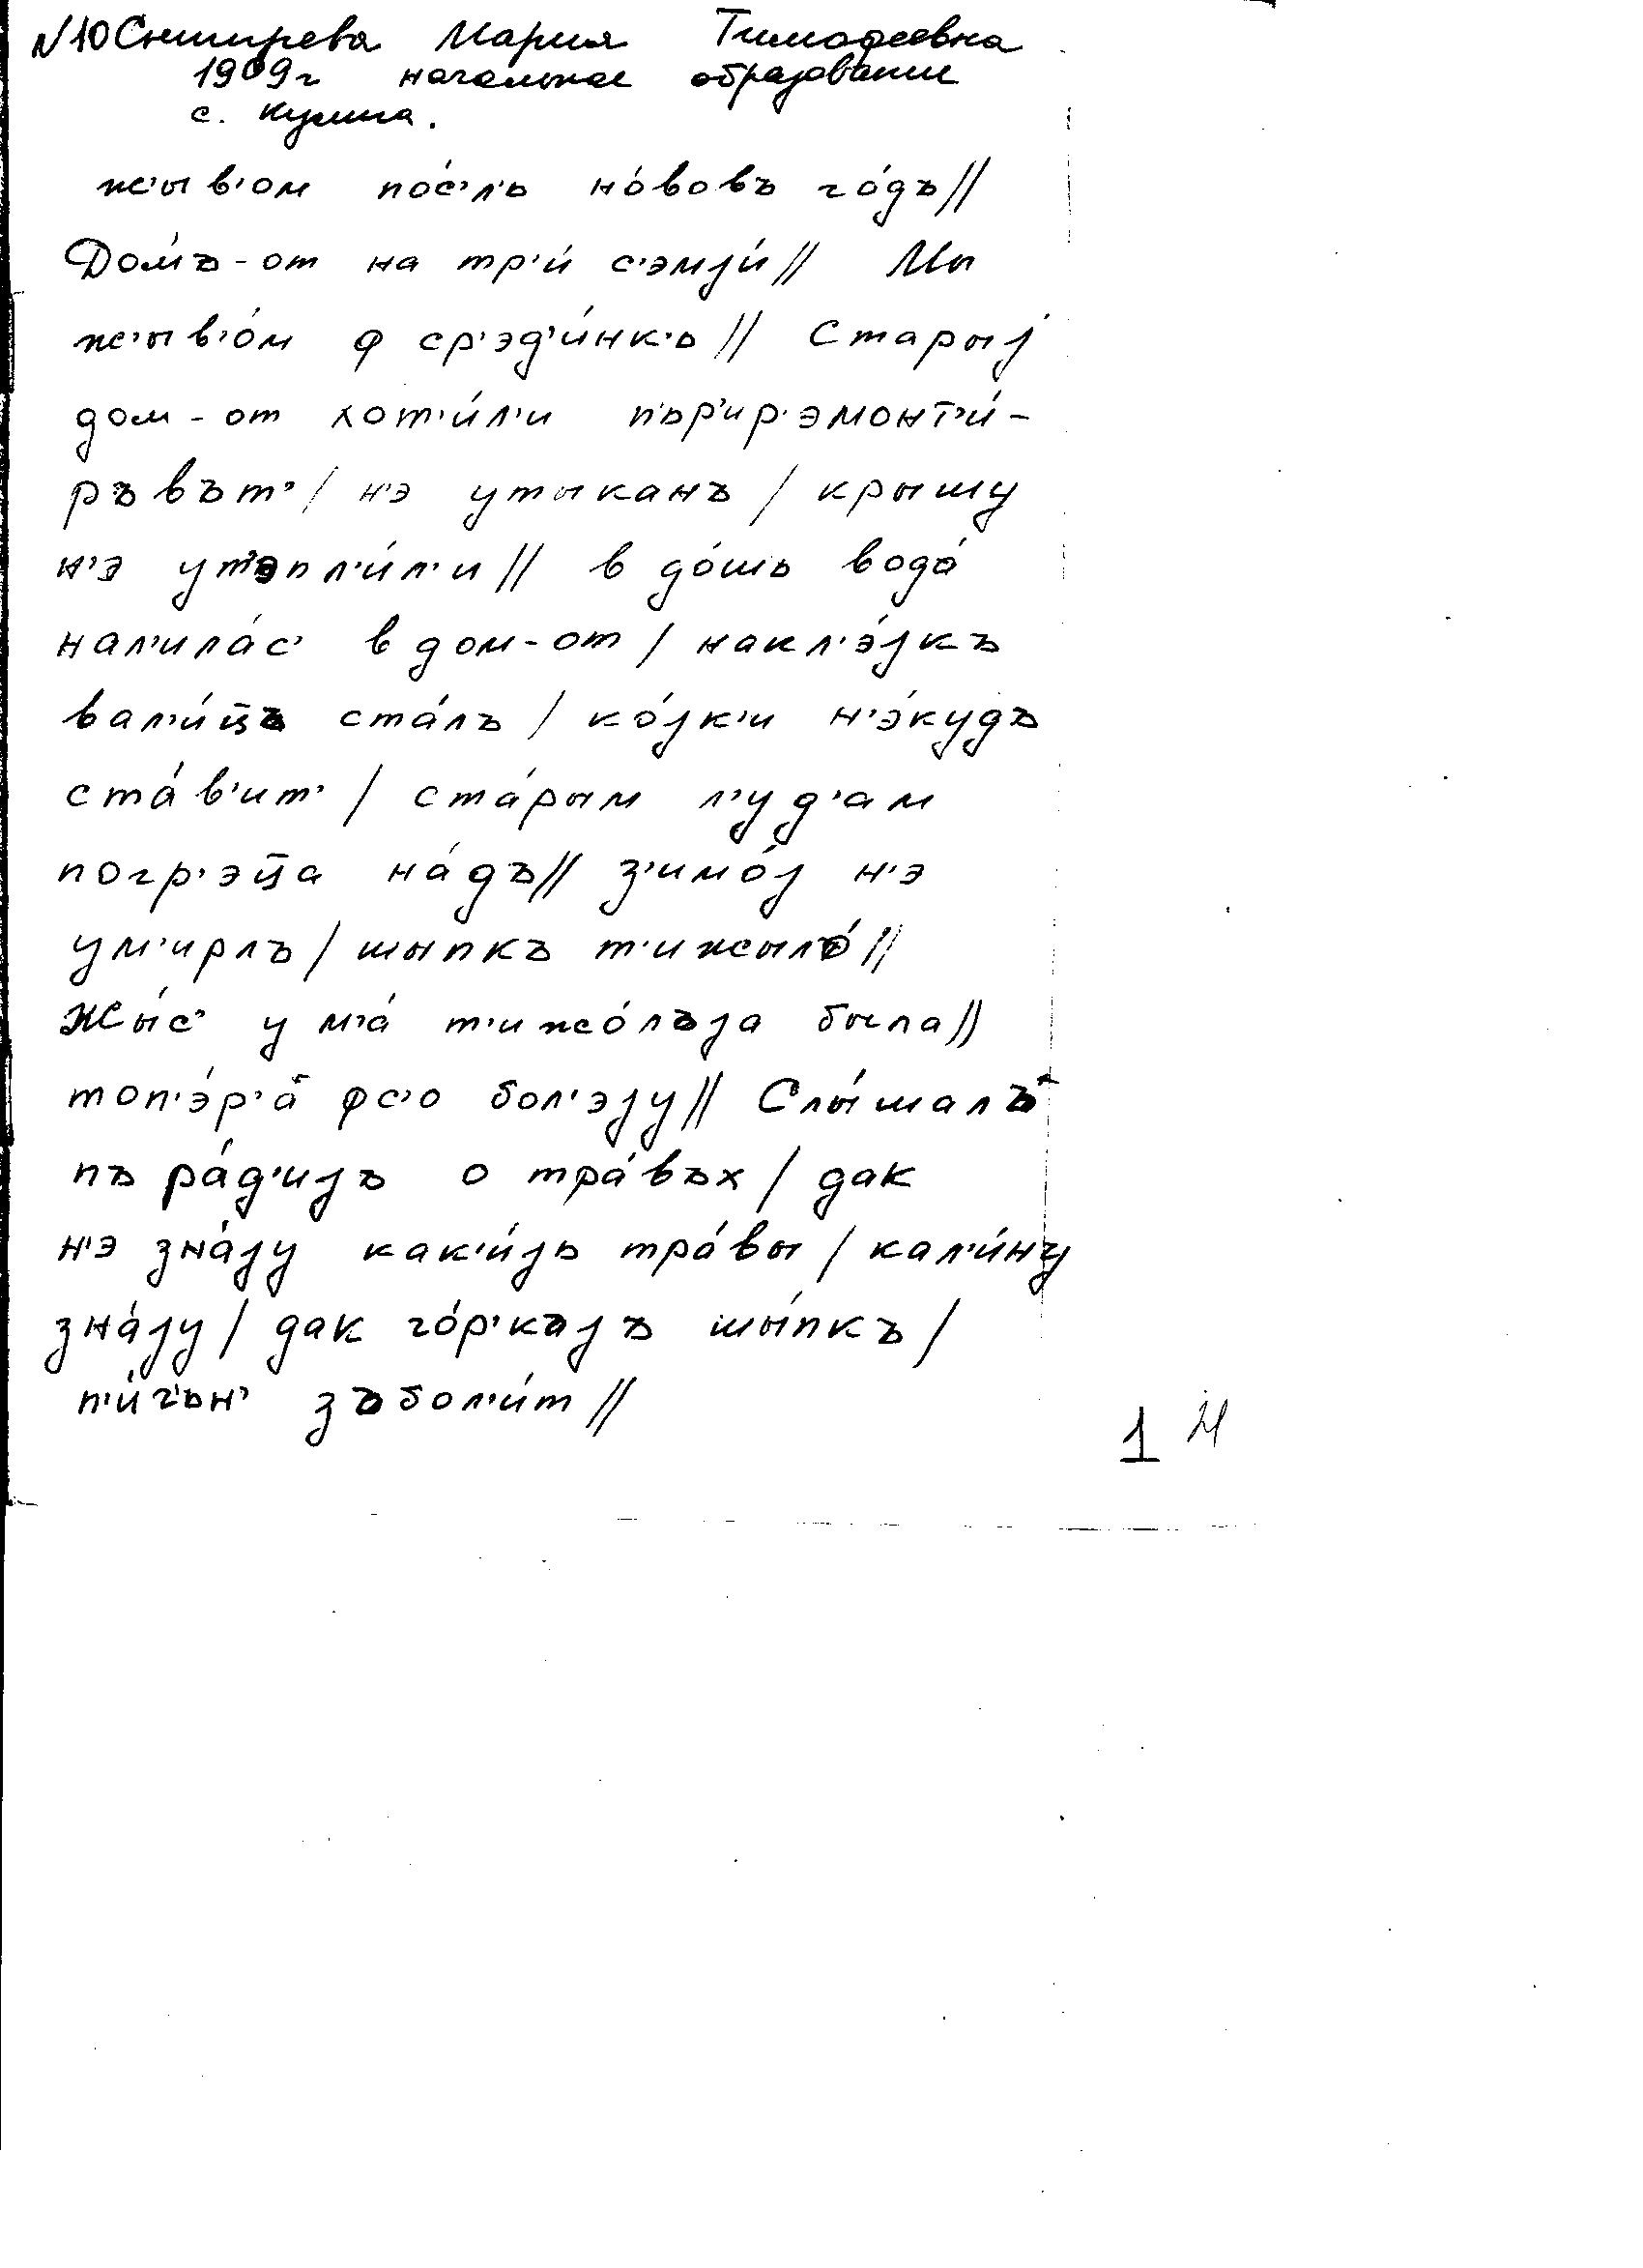 N10 Снигирева Мария Тимофеевна
1909г начальное образование
с. Кулига.
жʼывʼом по́сʼлʼь но́вовъ го́дъ//
До́мъ-от на трʼи́ сʼэмjи́// Мы
жʼывʼо́м ф срʼэдʼи́нкʼь// Старыj
дом-от хотʼи́лʼи пʼьрʼирʼэмонтʼи́-
ръвътʼ/ нʼэ утыканъ/ крышу
нʼэ утʼэплʼи́лʼи// в до́шь вода́
налʼила́сʼ в дом-от/ наклʼэ́jкъ
валʼи́ц̄ъ ста́лъ/ ко́jкʼи нʼэ́кудъ
ста́вʼитʼ/ ста́рым лʼудʼам
погрʼэц̄а на́дъ// зʼимо́j нʼэ
умʼирлъ/ шыпкъ тʼижыло́//
Жы́сʼ у мʼа́ тʼижо́лъjа была//
топʼэ́рʼа фсʼо болʼэjу// Слы́шалъ
пъ ра́дʼиjъ о тра́въх/ дак
нʼэ зна́jу какʼи́jь тра́вы/ калʼи́ну
зна́jу/ дак го́рʼкъjъ шы́пкъ/
пʼи́чʼьнʼ зъболʼи́т//
1 И